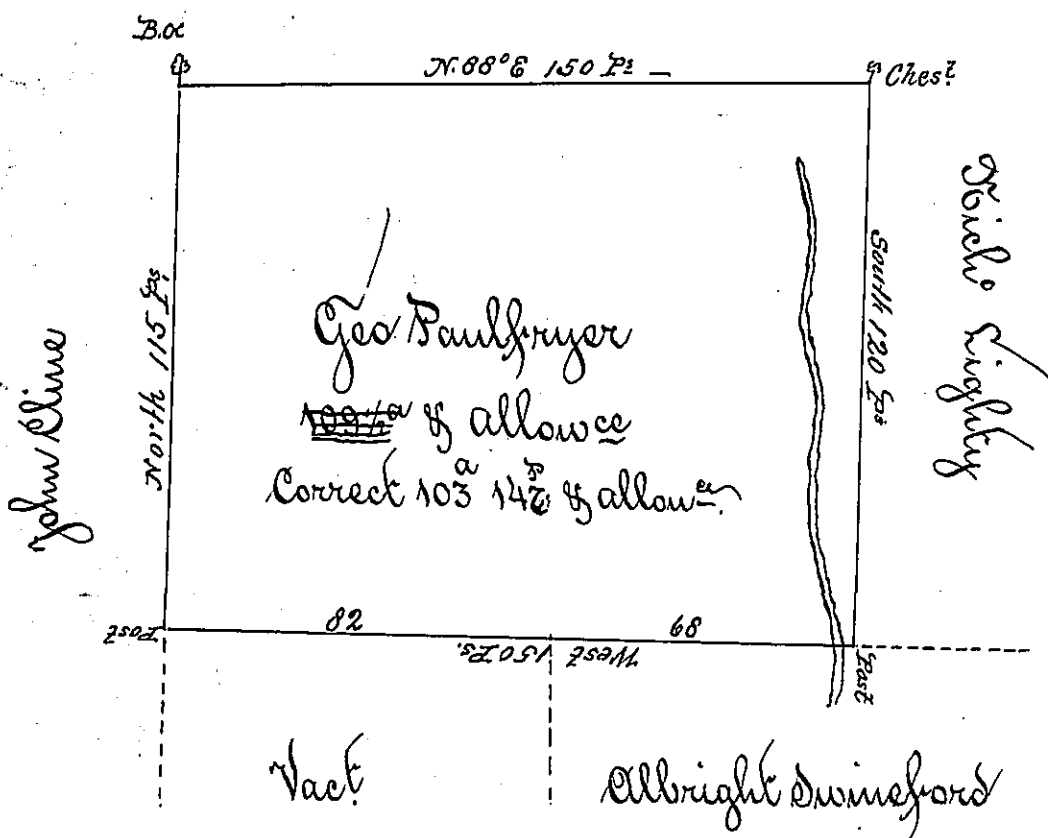 B.o
N. 88° E 150 Ps
Chest
John Cline
North 115 Ps
Geo Paulfryer
109 1/2 a & allowce
Correct 103 a 142 ps & allowce
South 120 Ps
Nicho Lighty
Post
82
68
West 150 Ps.
Post
Vact
Albright Swineford